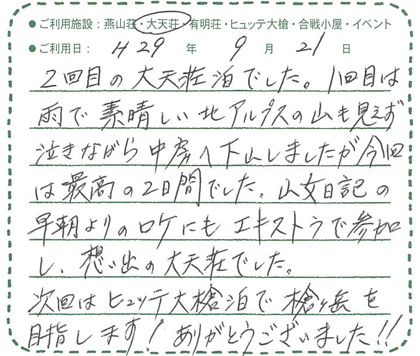 ●ご利用施設：燕山荘・大天荘・有明荘・ヒュッテ大槍・合戦小屋・イベント
●ご利用日： H29 年 9 月 21 日
2回目の大天荘泊でした。1回目は
雨で素晴しい北アルプスの山も見えず
泣きながら中房へ下山しましたが今回
は最高の2日間でした。山女日記の
早朝よりのロケにもエキストラで参加
し、想い出の大天荘でした。
次回はヒュッテ大槍泊で槍ヶ岳を
目指します！ありがとうございました!!